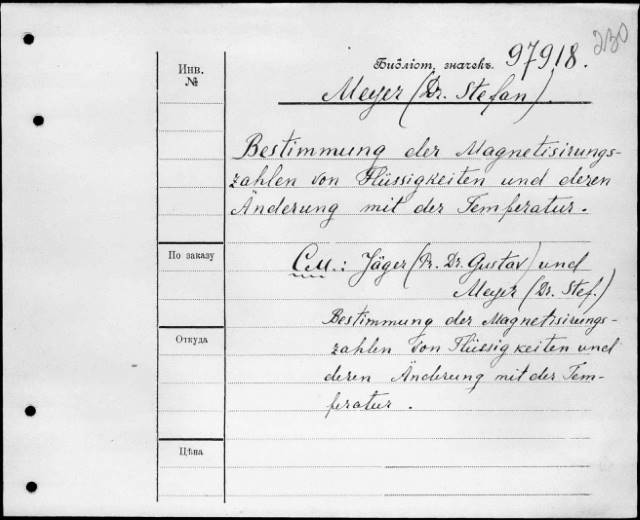 230
Инв.
№
Библіот. значекъ. 97918.
Meyer (Dr. Stefan).
Bestimmung der Magnetisirungs-
zahlen von Flüssigkeiten und deren
Änderung mit der Temperatur.
По заказу
См.: Jäger (Dr. Gustav) und
Meyer (Dr. Stef.)
Bestimmung der Magnetisirungs-
zahlen von Flüssigkeiten und
Откуда
deren Änderung mit der Tem-
peratur.
Цѣна